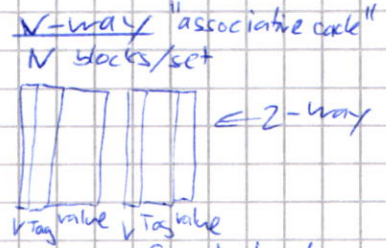 N-way "associative cache"
N blocks/set
← 2-way
V Tag value V Tag value